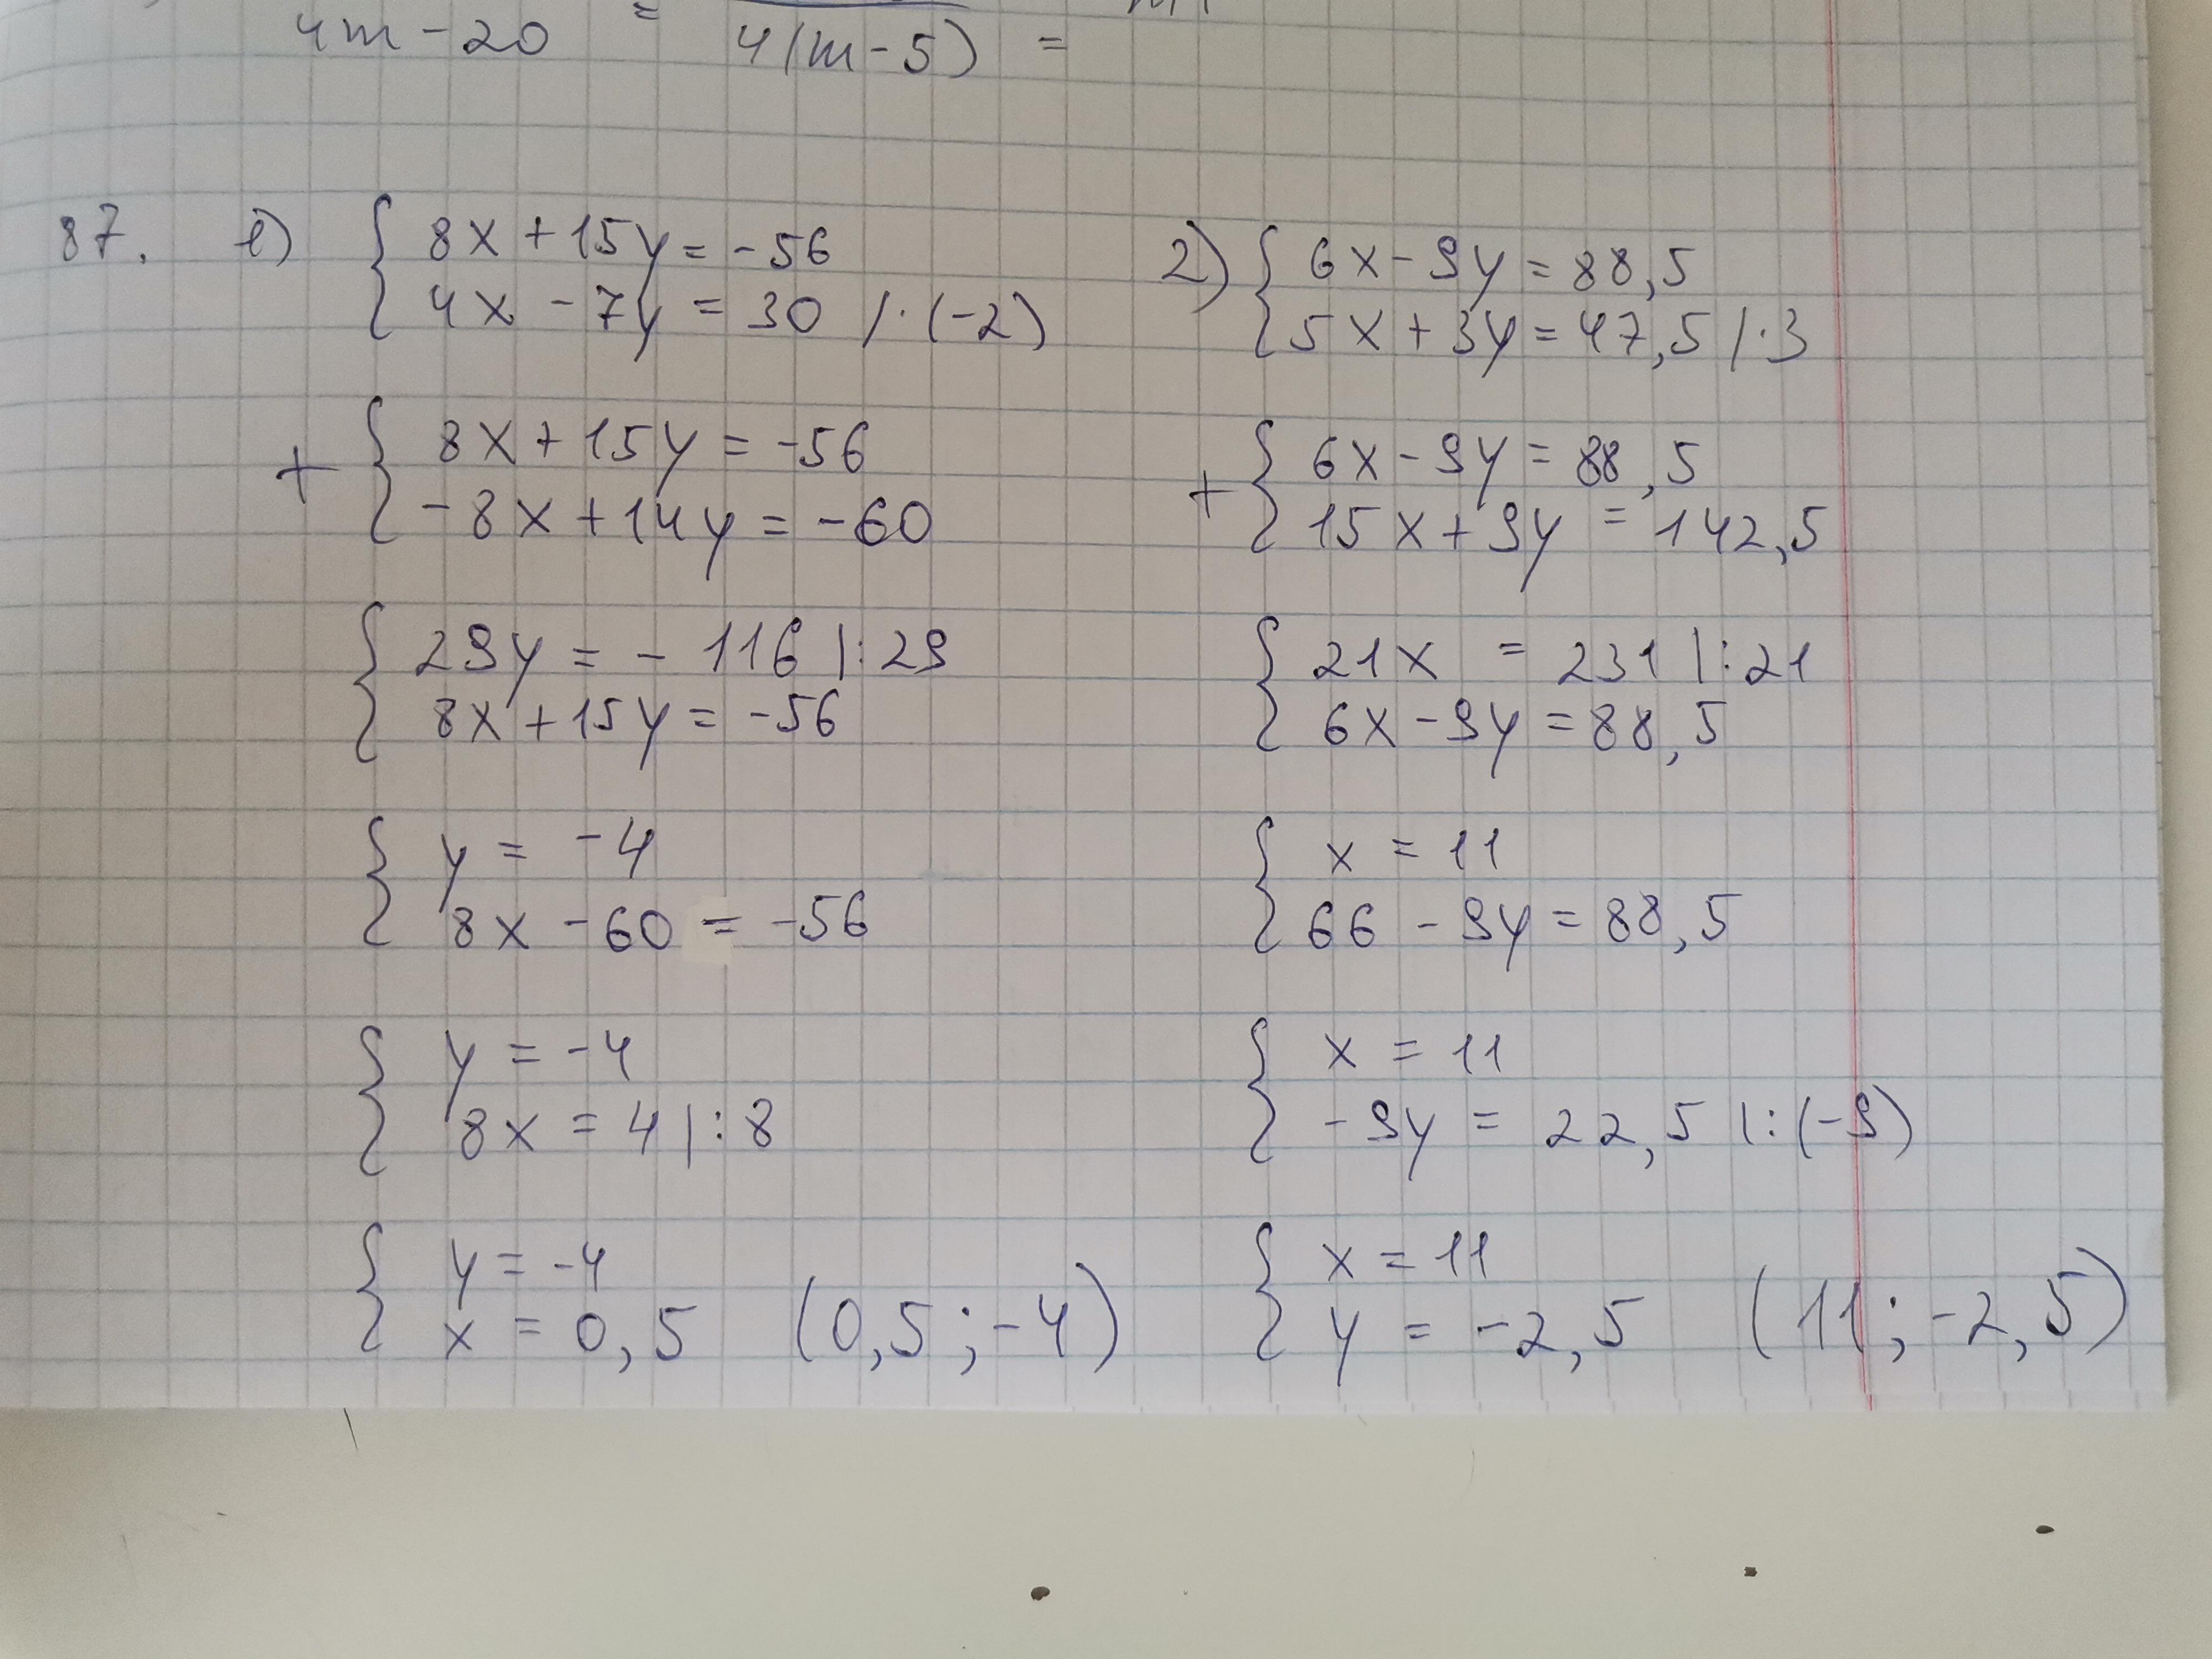 4m - 20 = 4(m - 5) =
87. 1) { 8x + 15y = -56
4x - 7y = 30 /·(-2)
+ { 8x + 15y = -56
-8x + 14y = -60
{ 29y = - 116 |:29
8x + 15y = -56
{ y = -4
8x - 60 = -56
{ y = -4
8x = 4 |:8
{ y = -4
x = 0,5 (0,5 ; -4)
2) { 6x - 9y = 88,5
5x + 3y = 47,5 /·3
+ { 6x - 9y = 88,5
15x + 9y = 142,5
{ 21x = 231 |:21
6x - 9y = 88,5
{ x = 11
66 - 9y = 88,5
{ x = 11
-9y = 22,5 |:(-9)
{ x = 11
y = -2,5 (11 ; -2,5)